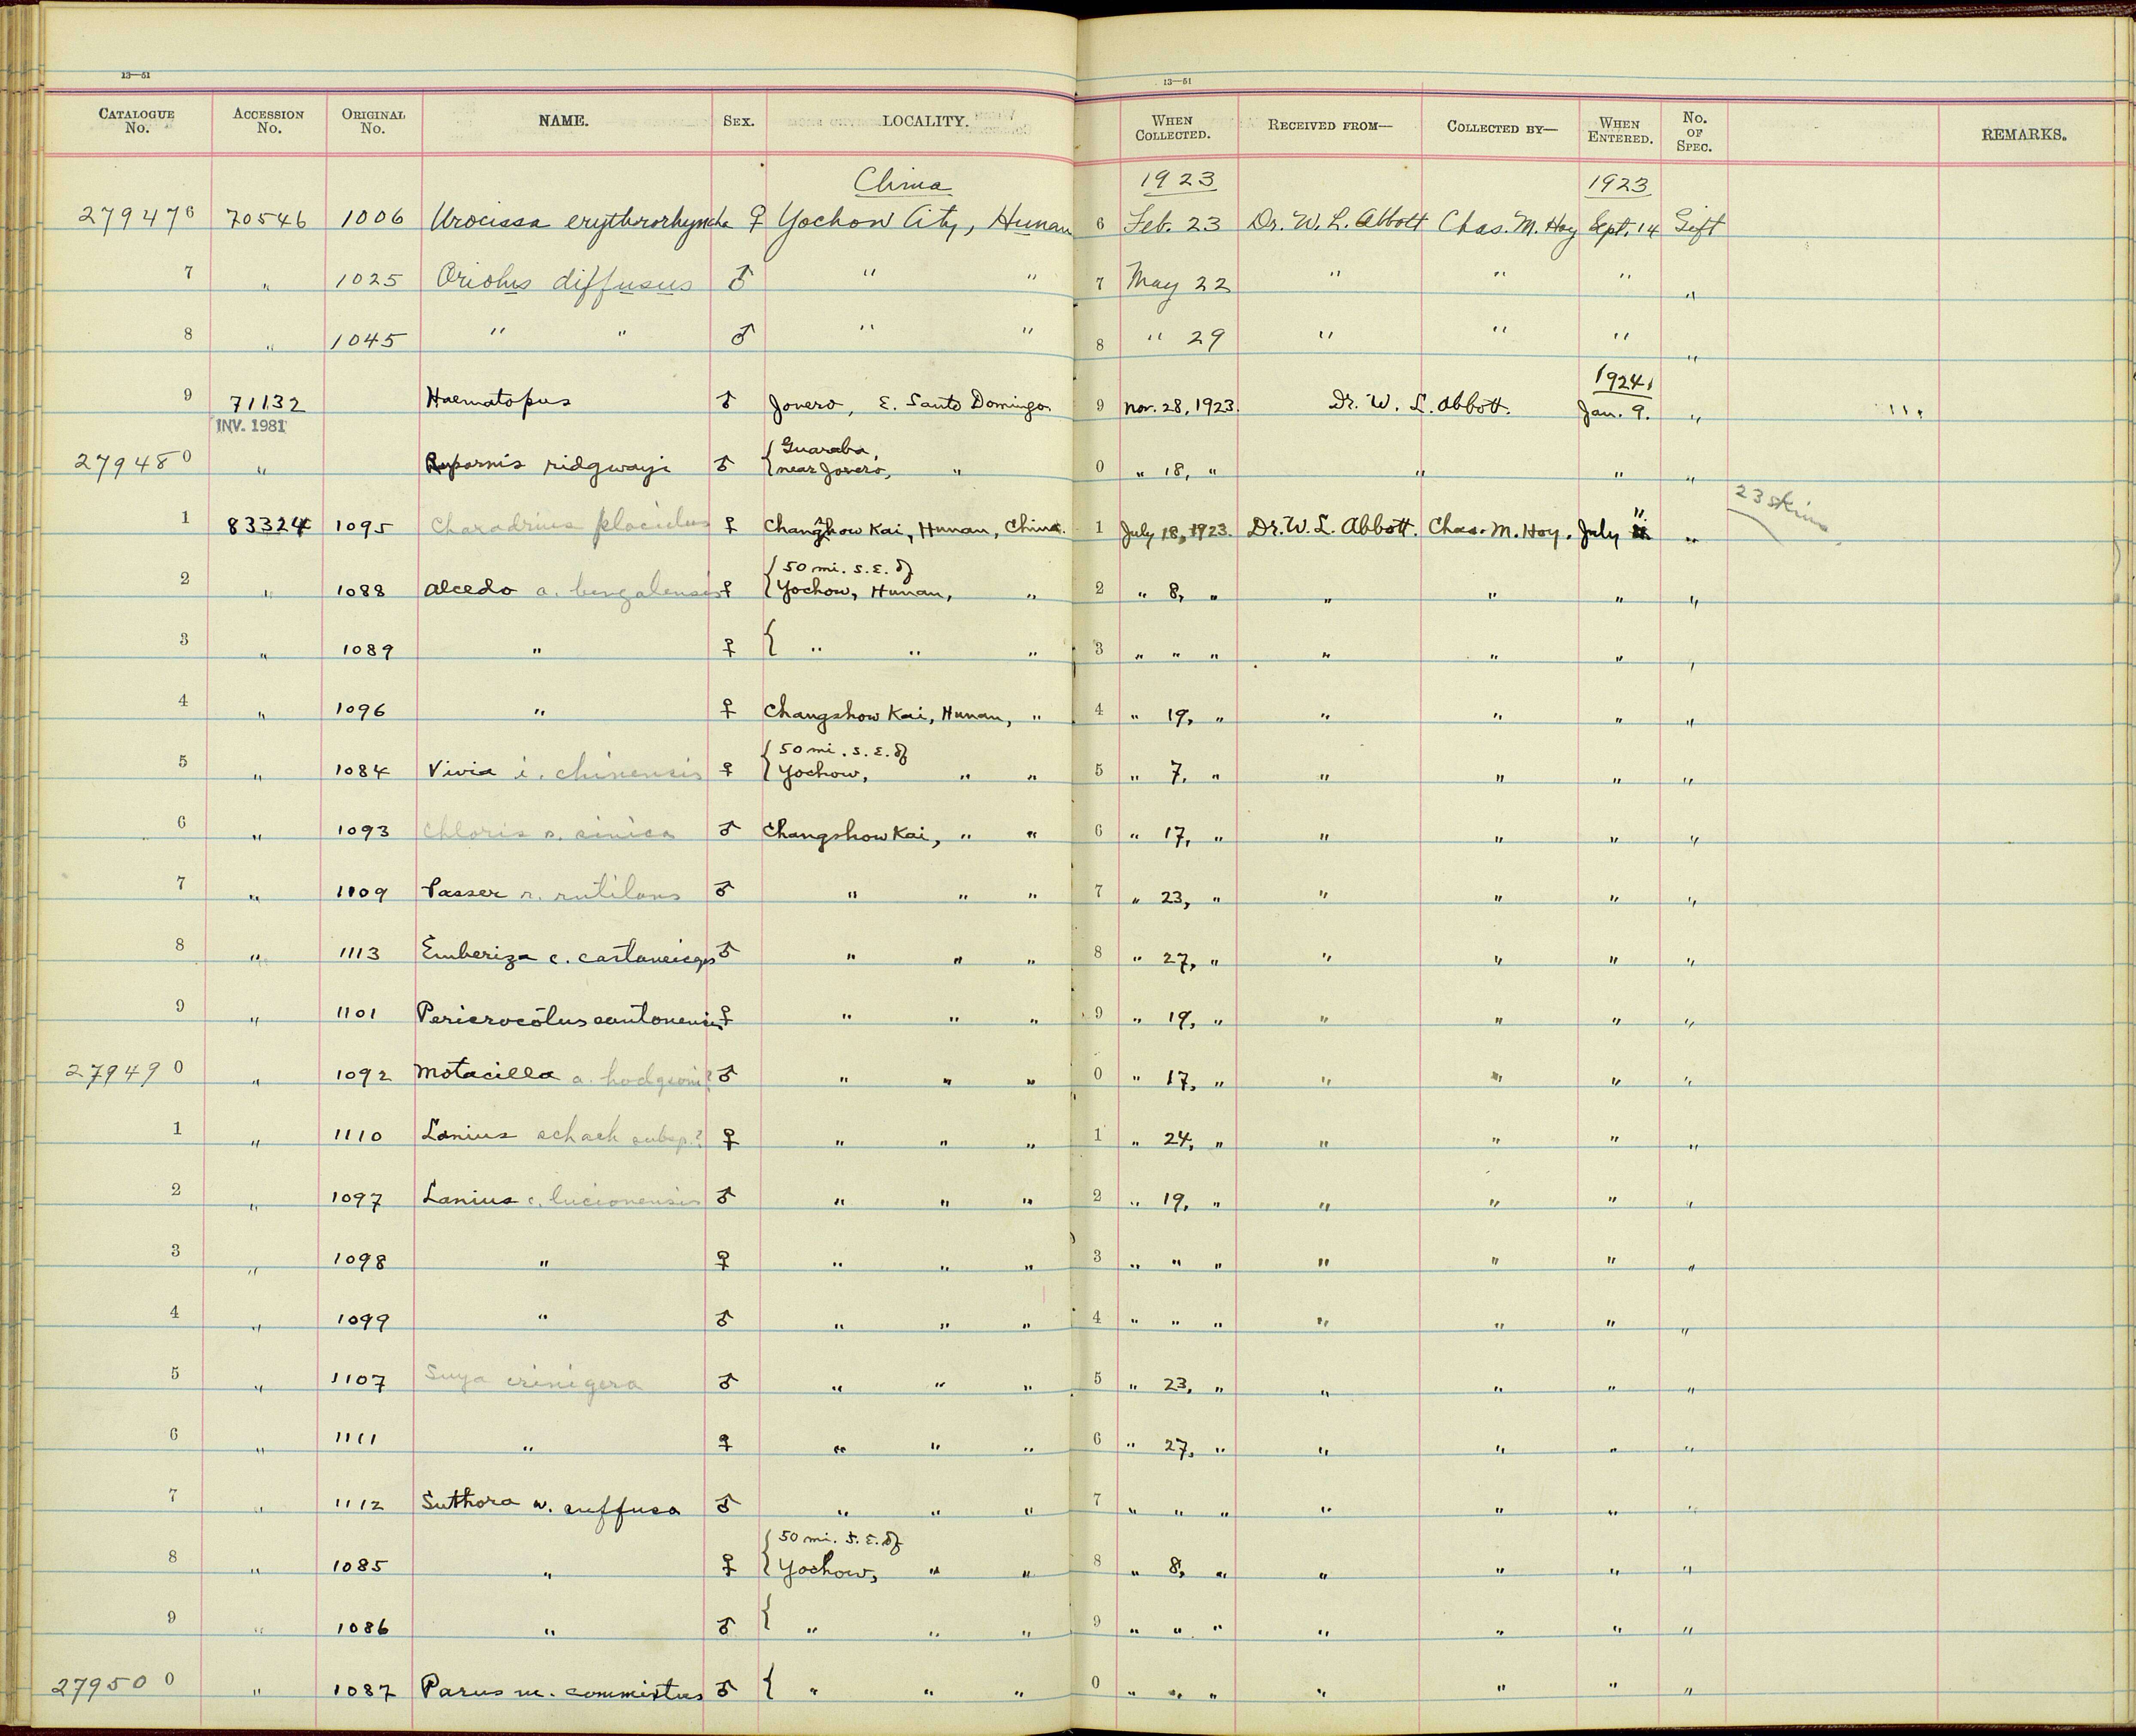 13—51 13—51
CATALOGUE No. ACCESSION No. ORIGINAL No. NAME. SEX. LOCALITY. WHEN COLLECTED. RECEIVED FROM— COLLECTED BY— WHEN ENTERED. No. OF SPEC. REMARKS.
China 1923 1923
279476 70546 1006 Urocissa erythrorhyncha ♀ Yochow City, Hunan 6 Feb. 23 Dr. W. L. Abbott Chas. M. Hoy Sept. 14 Gift
7 " 1025 Oriolus diffusus ♂ " " 7 May 22 " " " "
8 " 1045 " " ♂ " " 8 " 29 " " " "
1924
9 71132 Haematopus ♂ Jovero, E. Santo Domingo. 9 Nov. 28, 1923. Dr. W. L. Abbott. Jan. 9. "
INV. 1981
{ Guaraba,
279480 " Rupornis ridgwayi ♂ near Jovero, " 0 " 18, " " " "
23 skins
1 83324 1095 Charadrius placidus ♀ Changshow Kai, Hunan, China. 1 July 18, 1923. Dr. W. L. Abbott. Chas. M. Hoy. July 11 "
{ 50 mi. S.E. of
2 " 1088 Alcedo a. bengalensis ♀ Yochow, Hunan, " 2 " 8, " " " " "
3 " 1089 " ♀ { " " " 3 " " " " " " "
4 " 1096 " ♀ Changshow Kai, Hunan, " 4 " 19, " " " " "
{ 50 mi. S.E. of
5 " 1084 Vivia i. chinensis ♀ Yochow, " " 5 " 7, " " " " "
6 " 1093 Chloris s. sinica ♂ Changshow Kai, " " 6 " 17, " " " " "
7 " 1109 Passer r. rutilans ♂ " " " 7 " 23, " " " " "
8 " 1113 Emberiza c. castaneiceps ♂ " " " 8 " 27, " " " " "
9 " 1101 Pericrocotus cantonensis ♀ " " " 9 " 19, " " " " "
279490 " 1092 Motacilla a. hodgsoni? ♂ " " " 0 " 17, " " " " "
1 " 1110 Lanius schach subsp.? ♀ " " " 1 " 24, " " " " "
2 " 1097 Lanius c. lucionensis ♂ " " " 2 " 19, " " " " "
3 " 1098 " ♀ " " " 3 " " " " " " "
4 " 1099 " ♂ " " " 4 " " " " " " "
5 " 1107 Suya crinigera ♂ " " " 5 " 23, " " " " "
6 " 1111 " ♀ " " " 6 " 27, " " " " "
7 " 1112 Suthora w. suffusa ♂ " " " 7 " " " " " " "
{ 50 mi. S.E. of
8 " 1085 " ♀ Yochow, " " 8 " 8, " " " " "
9 " 1086 " ♂ { " " " 9 " " " " " " "
279500 " 1087 Parus m. commixtus ♂ { " " " 0 " " " " " " "